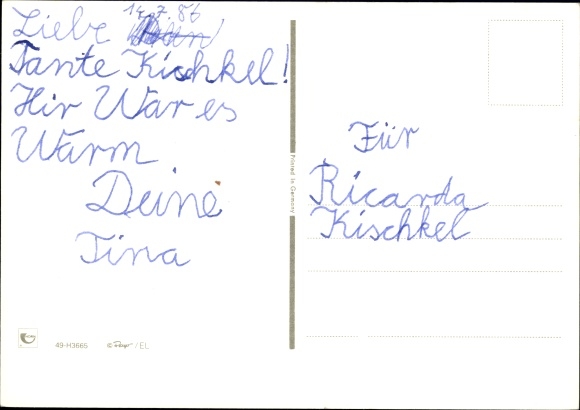 14.7.86
Liebe
Tante Kischkel!
Hir War es
Warm
Deine
Tina
Printed in Germany
Für
Ricarda
Kischkel
49-H3665 © / EL